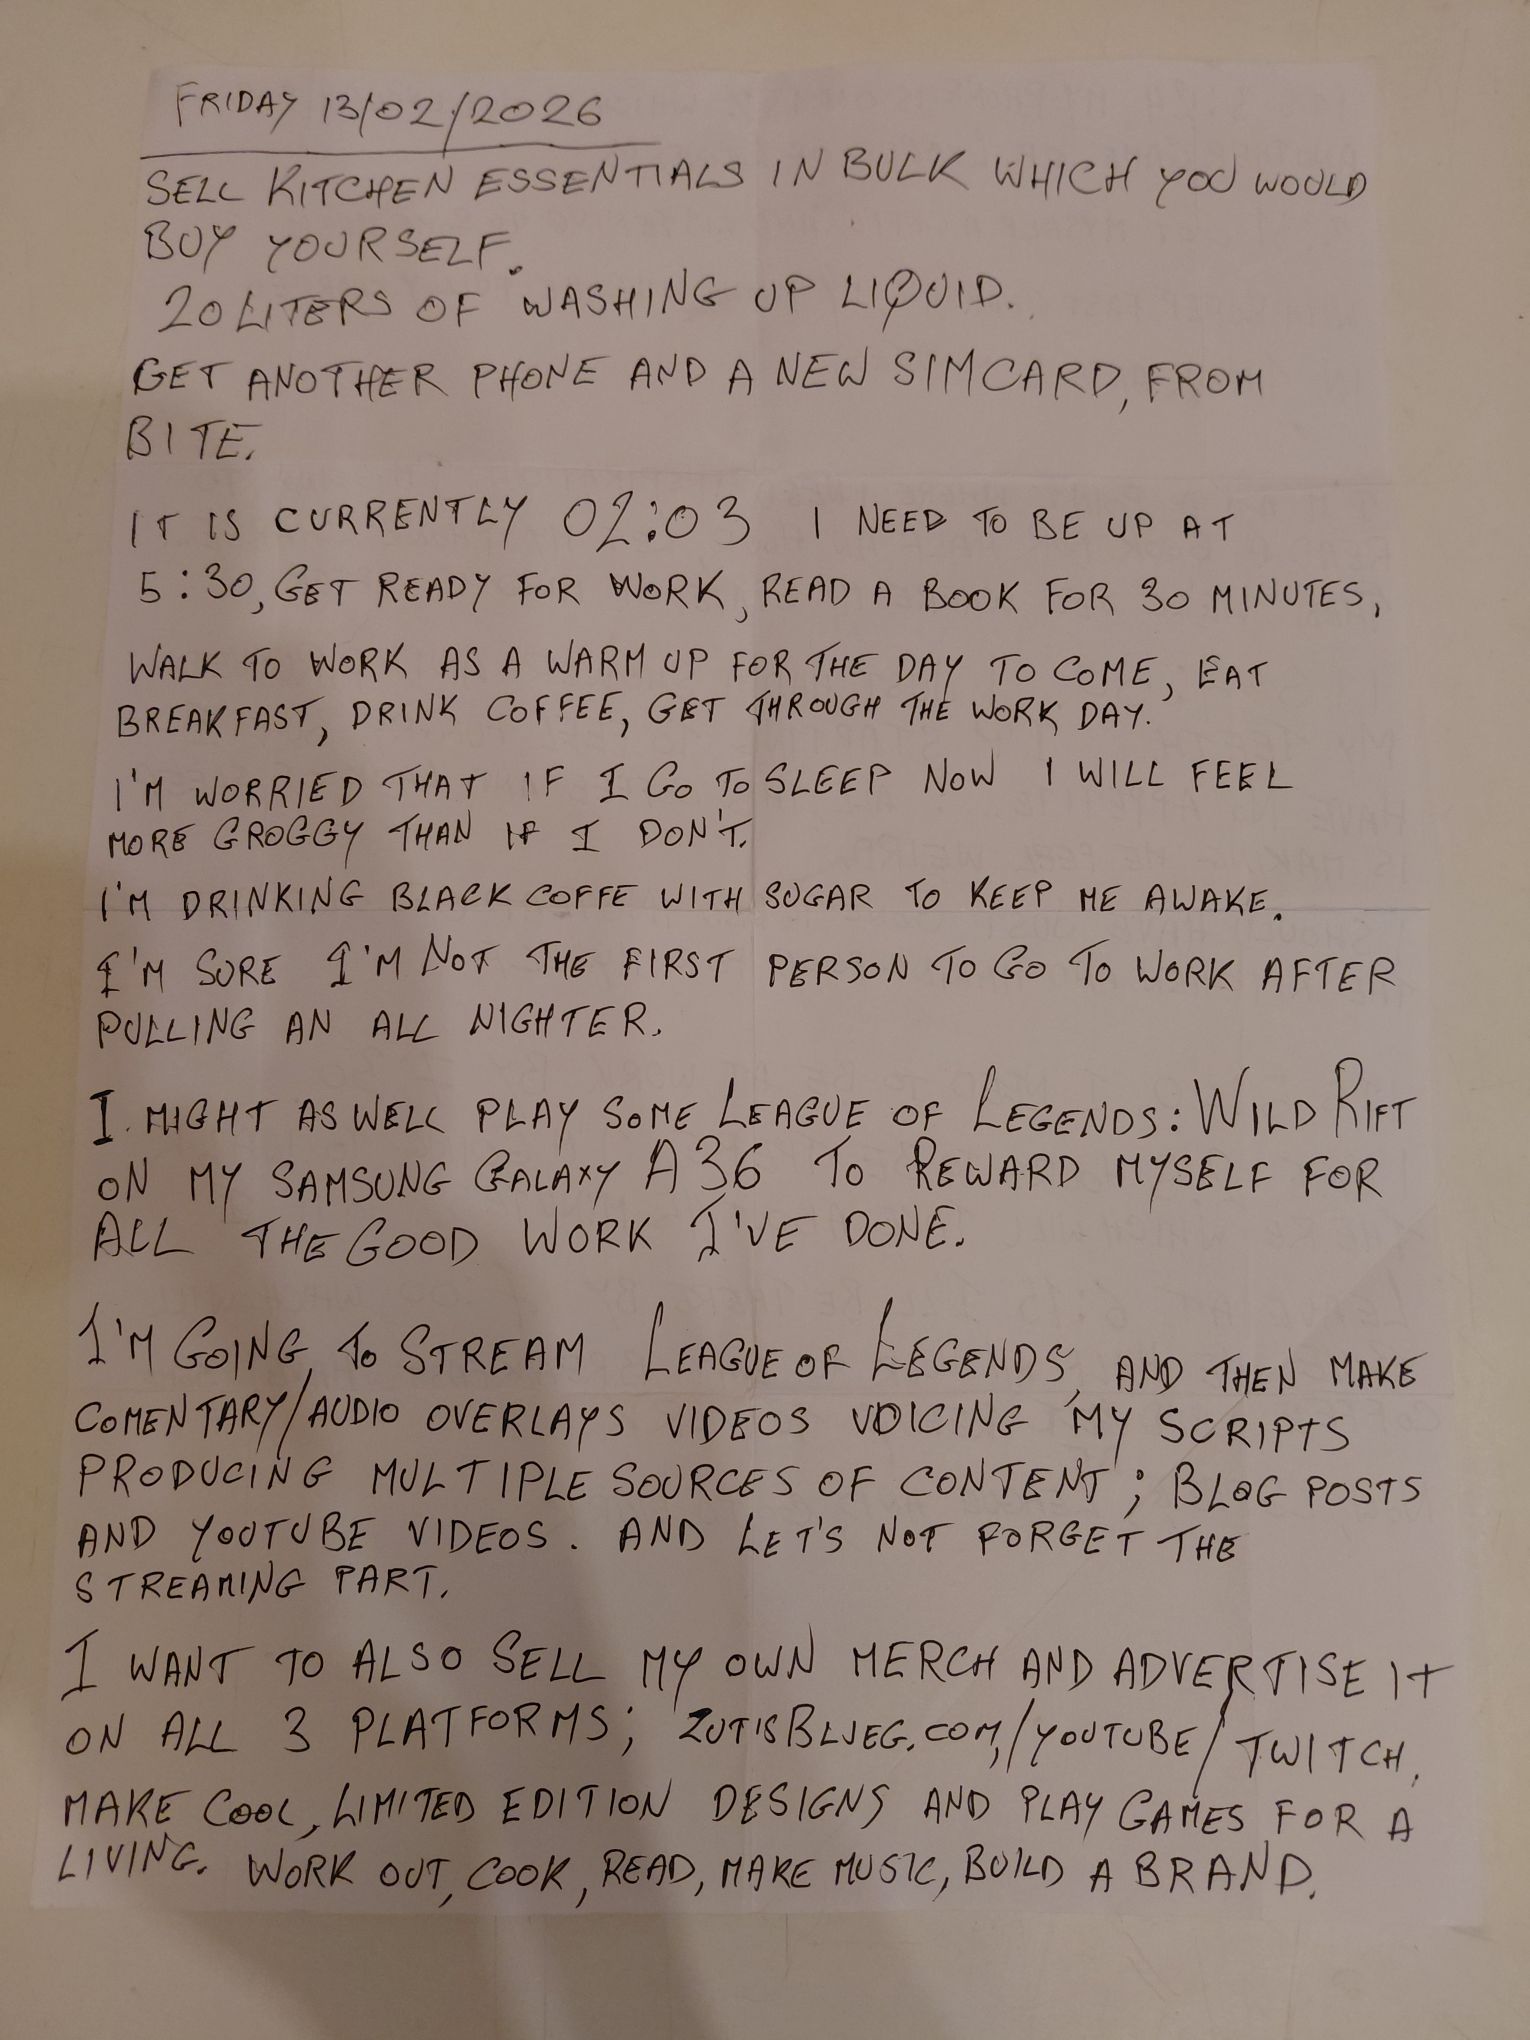 FRIDAY 13/02/2026
SELL KITCHEN ESSENTIALS IN BULK WHICH YOU WOULD
BUY YOURSELF.
20 LITERS OF WASHING UP LIQUID.
GET ANOTHER PHONE AND A NEW SIMCARD, FROM
BITE.
IT IS CURRENTLY 02:03 I NEED TO BE UP AT
5:30, GET READY FOR WORK, READ A BOOK FOR 30 MINUTES,
WALK TO WORK AS A WARM UP FOR THE DAY TO COME, EAT
BREAKFAST, DRINK COFFEE, GET THROUGH THE WORK DAY.
I'M WORRIED THAT IF I GO TO SLEEP NOW I WILL FEEL
MORE GROGGY THAN IF I DON'T.
I'M DRINKING BLACK COFFE WITH SUGAR TO KEEP ME AWAKE.
I'M SURE I'M NOT THE FIRST PERSON TO GO TO WORK AFTER
PULLING AN ALL NIGHTER.
I MIGHT AS WELL PLAY SOME LEAGUE OF LEGENDS: WILD RIFT
ON MY SAMSUNG GALAXY A36 TO REWARD MYSELF FOR
ALL THE GOOD WORK I'VE DONE.
I'M GOING TO STREAM LEAGUE OF LEGENDS, AND THEN MAKE
COMENTARY/AUDIO OVERLAYS VIDEOS VOICING MY SCRIPTS
PRODUCING MULTIPLE SOURCES OF CONTENT; BLOG POSTS
AND YOUTUBE VIDEOS. AND LET'S NOT FORGET THE
STREAMING PART.
I WANT TO ALSO SELL MY OWN MERCH AND ADVERTISE IT
ON ALL 3 PLATFORMS; ZUTISBLJEG.COM,/YOUTUBE/TWITCH,
MAKE COOL, LIMITED EDITION DESIGNS AND PLAY GAMES FOR A
LIVING. WORK OUT, COOK, READ, MAKE MUSIC, BUILD A BRAND.